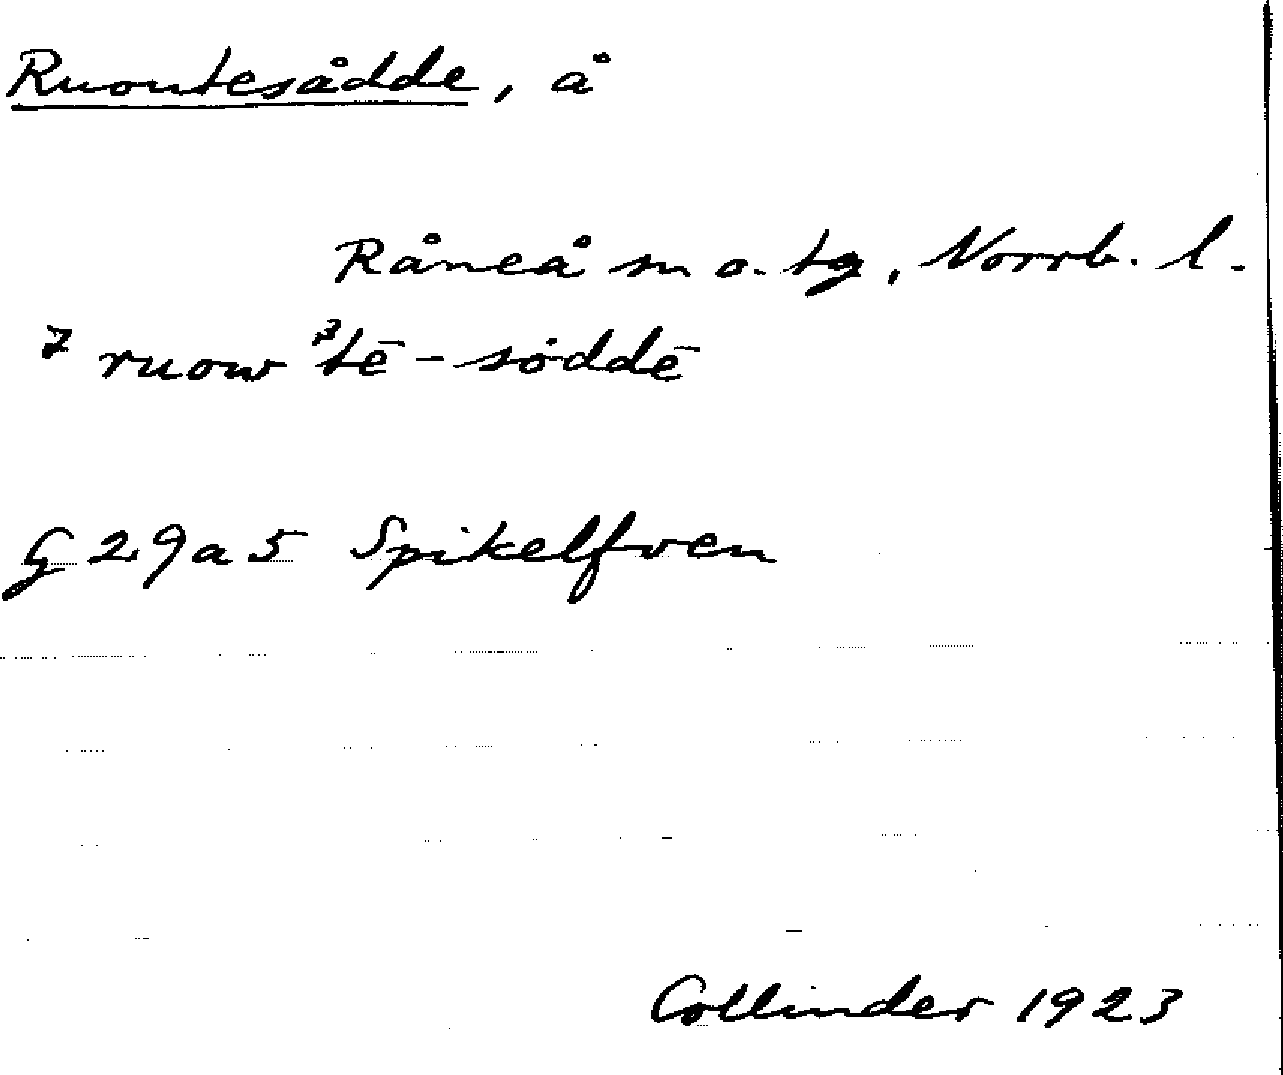 Ruontesådde, å
Råneå sn o. tg, Norrb. l.
7 ruow ᵌtē-søddē
G 29a5 Spikelfven
Collinder 1923